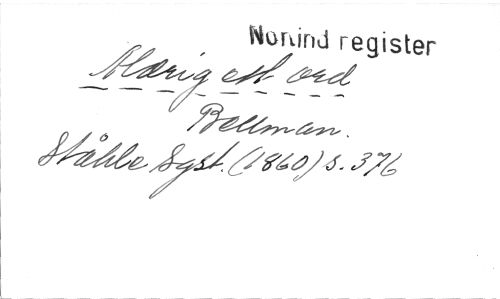 Nonind register
Aldrig ett ord
Bellman.
Ståhle Syst. (1860) s. 376